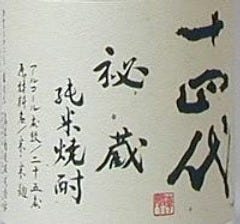 十四代
秘蔵
純米焼酎
アルコール分 二十五度
原材料名/米・米麹